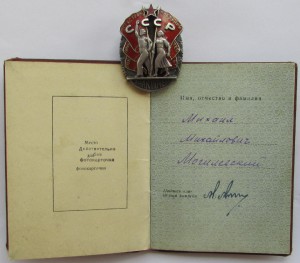 СССР
Место
Действительно
без
фотокарточки
фотокарточки
Имя, отчество и фамилия
Михаил
Михайлович
Могилевский